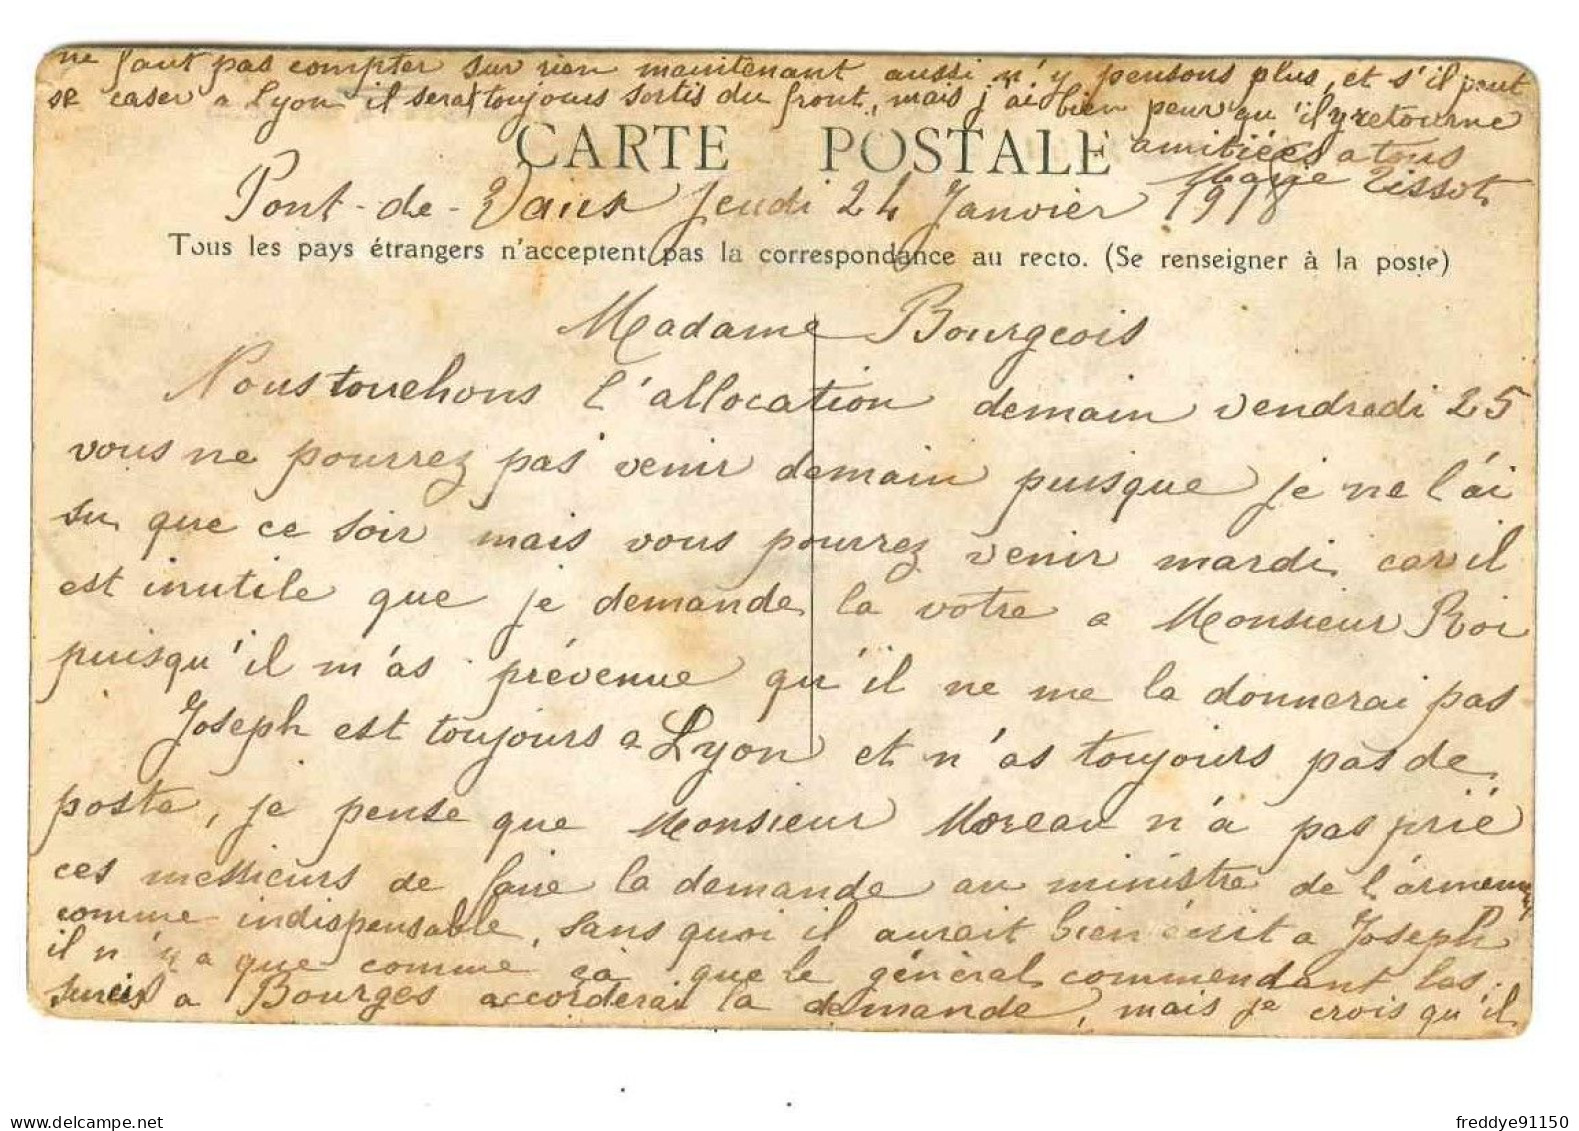 ne faut pas compter sur rien maintenant aussi n'y pensons plus, et s'il peut
se caser a Lyon il serat toujours sortis du front, mais j'ai bien peur qu'il y retourne
amitiées a tous
Marie Tissot
CARTE POSTALE
Pont-de-Vaux Jeudi 24 Janvier 1918
Tous les pays étrangers n'acceptent pas la correspondance au recto. (Se renseigner à la poste)
Madame Bourgeois
Nous touchons l'allocation demain vendredi 25
vous ne pourrez pas venir demain puisque je ne l'ai
su que ce soir mais vous pourrez venir mardi car il
est inutile que je demande la votre a Monsieur Roi
puisqu'il m'as prévenue qu'il ne me la donnerai pas
Joseph est toujours a Lyon et n'as toujours pas de
poste, je pense que Monsieur Moreau n'a pas prié
ces messieurs de faire la demande au ministre de l'armement
comme indispensable, sans quoi il aurait bien écrit a Joseph
il n'y a que comme ça que le général commendant les
sursis a Bourges accorderai la demande, mais je crois qu'il
freddye91150